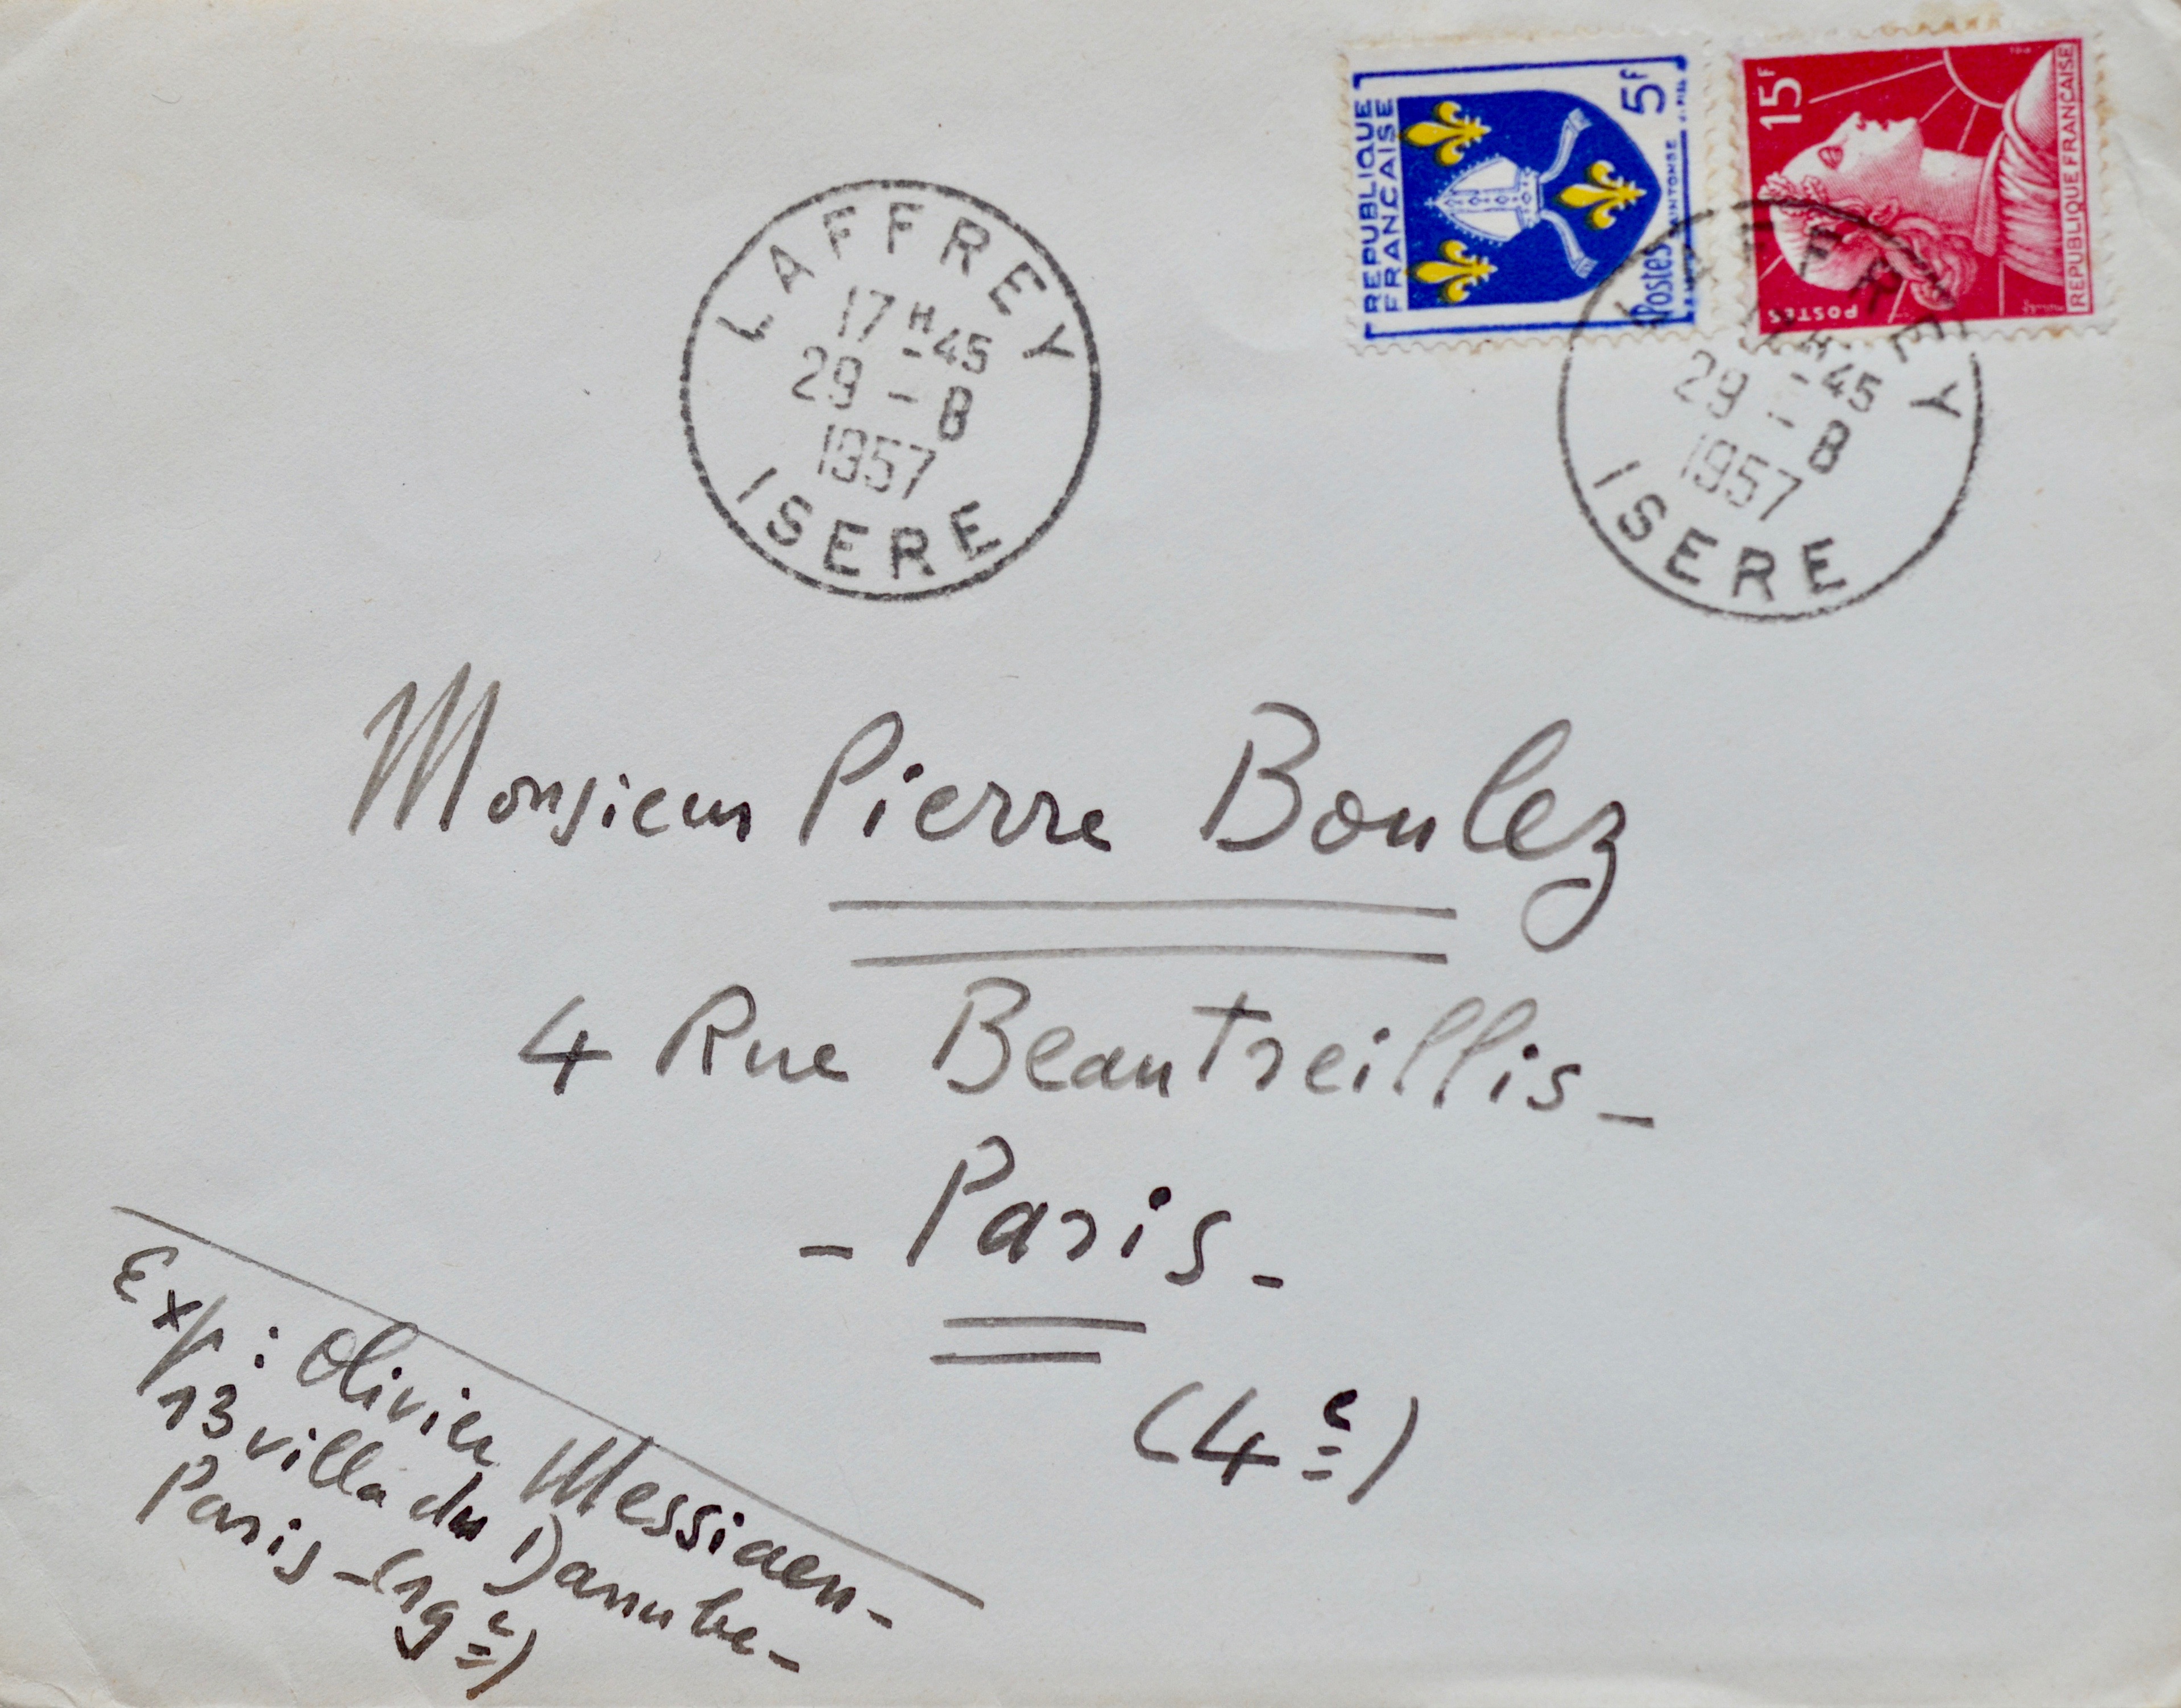 REPUBLIQUE
FRANCAISE
5F
Postes
15F
REPUBLIQUE FRANCAISE
POSTES
LAFFREY
17H-45
29-8
1957
ISERE
LAFFREY
-45
29-8
1957
ISERE
Monsieur Pierre Boulez
4 Rue Beautreillis-
- Paris -
(4e)
Exp: Olivier Messiaen-
13 villa du Danube-
Paris-(19e)